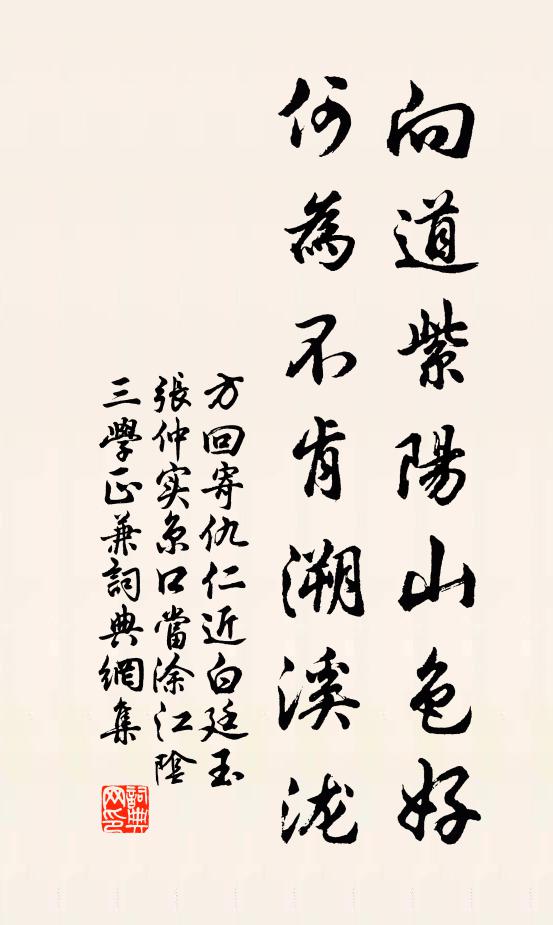 向道紫陽山色好
何為不肯溯溪泷
方回寄仇仁近白廷玉
張仲实京口當涂江陰
三學正兼詞典網集
詞典网印